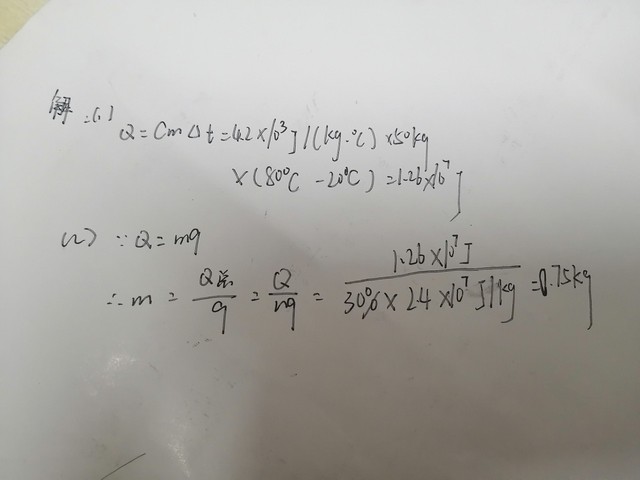 解:(1)
Q=CmΔt=4.2×10³J/(kg·℃)×50kg
×(80℃-20℃)=1.26×10⁷J
(2) ∵Q=mq
∴m = Q总/q = Q/ηq = 1.26×10⁷J/30%×2.4×10⁷J/kg =0.75kg